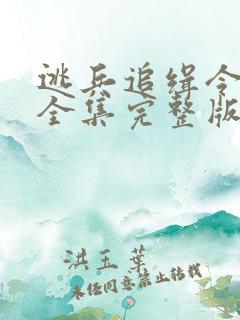 逃兵追缉令
全集完整版
洪玉葉
未经同意禁止转载